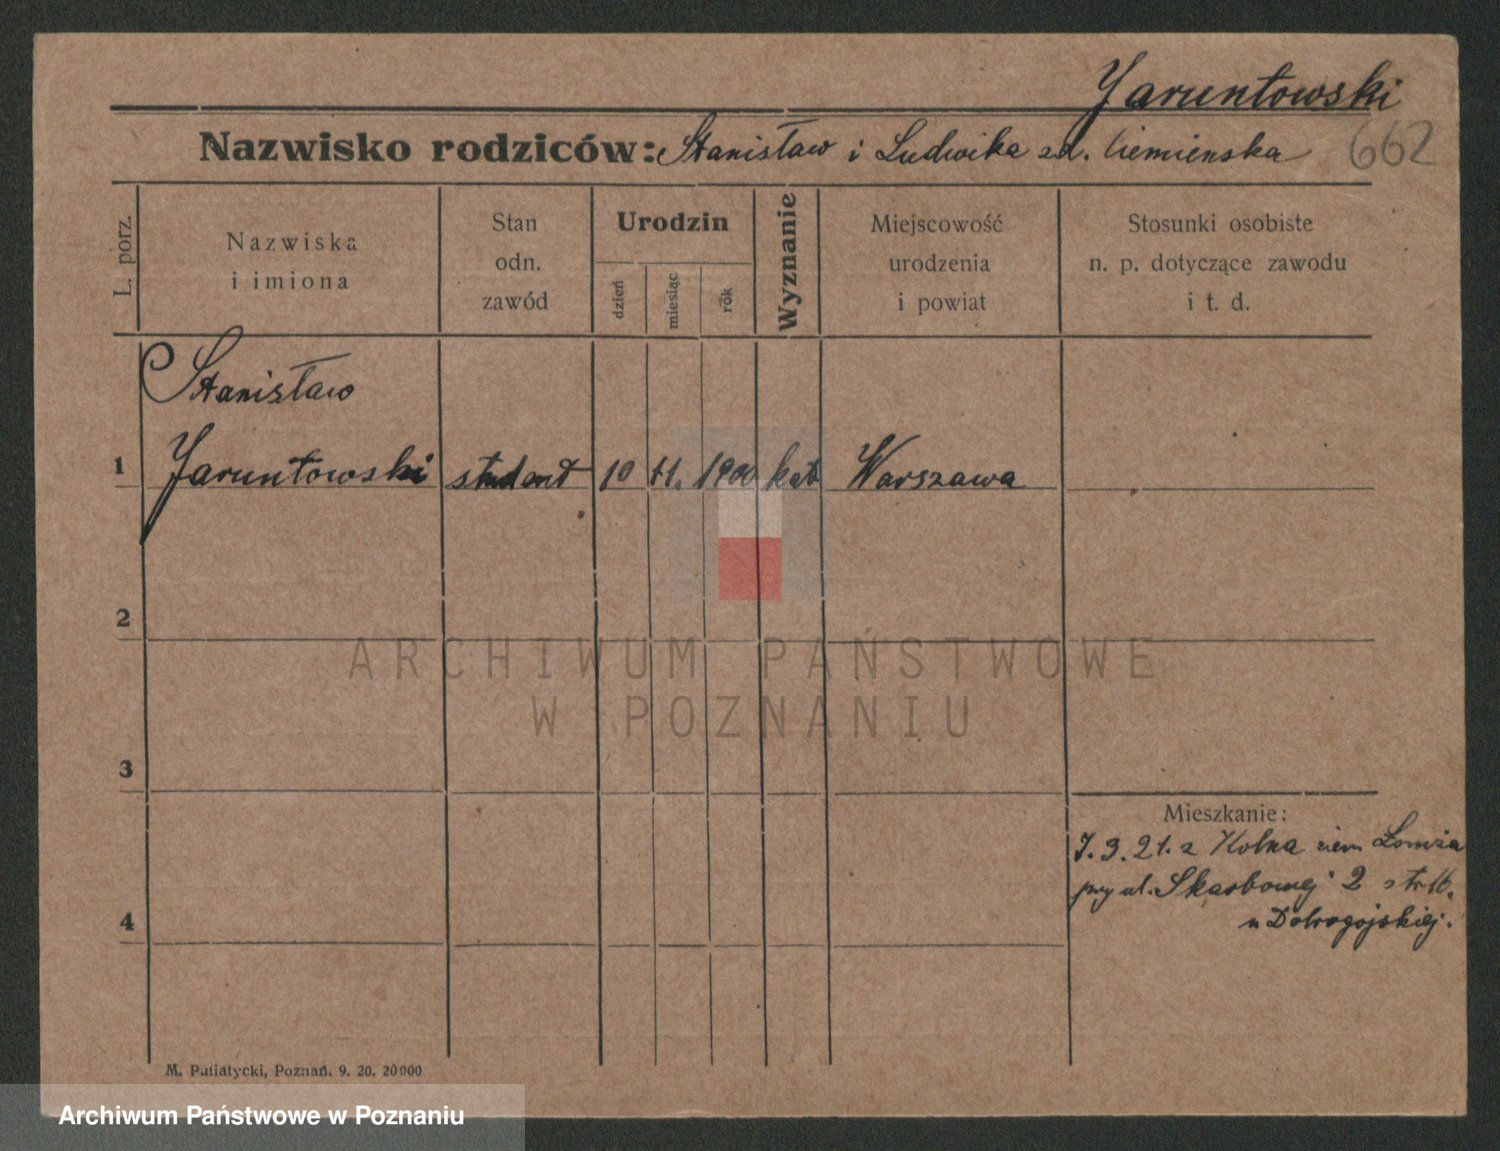 Jaruntowski
Nazwisko rodziców: Stanisław i Ludwika zd. Ciemienska
662
L. porz.
Nazwiska
i imiona
Stan
odn.
zawód
Urodzin
dzień
miesiąc
rok
Wyznanie
Miejscowość
urodzenia
i powiat
Stosunki osobiste
n. p. dotyczące zawodu
i t. d.
Stanisław
1 Jaruntowski student 10 11. 1900 kat Warszawa
2
ARCHIWUM PAŃSTWOWE
W POZNANIU
3
Mieszkanie:
7.3.21. z Kolna ziem Łomża
przy ul. Skarbowej 2 str
u Dobrogojskiej.
4
M. Putiatycki, Poznań. 9. 20. 20000.
Archiwum Państwowe w Poznaniu